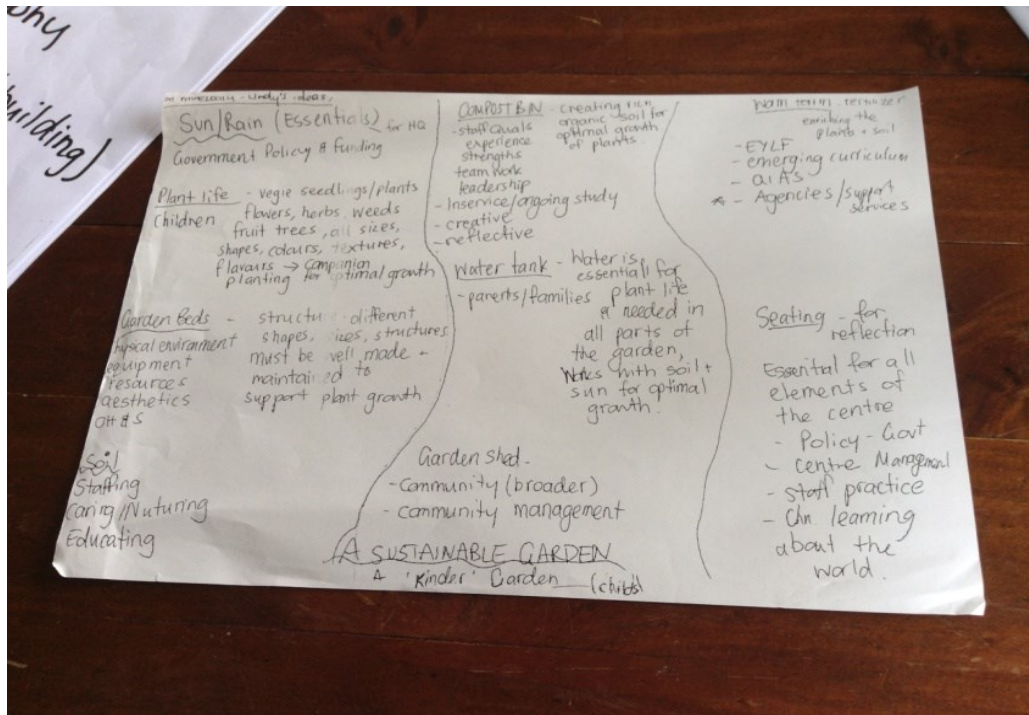 ohy
building)
Lindy's ideas,
Sun/Rain (Essentials) for HQ
Government Policy & Funding
Plant life - vegie seedlings/plants
Children flowers, herbs, weeds
fruit trees, all sizes,
shapes, colours, textures,
flavours → companion
planting for optimal growth
Garden Beds - different
physical environment shapes, sizes, structures
equipment must be well made
resources maintained to
aesthetics support plant growth
OH&S
Soil
Staffing
Caring/Nuturing
Educating
COMPOST BIN - creating rich
organic soil for
optimal growth
of plants.
- staff Quals
experience
strengths
team work
leadership
- Inservice/ongoing study
- creative
- reflective
Water tank - Water is
essential for
- parents/families plant life
& needed in
all parts of
the garden,
Works with soil +
sun for optimal
growth.
Garden shed -
- Community (broader)
- Community management
A SUSTAINABLE GARDEN
A 'Kinder' Garden (child's)
Worm farm - fertilizer
enriching the
plants + soil
- EYLF
- emerging curriculum
- QIAS
- Agencies/support
services
Seating - for
reflection
Essential for all
elements of
the centre
- Policy - Govt
- Centre Management
- staff practice
- Chn. learning
about the
world.